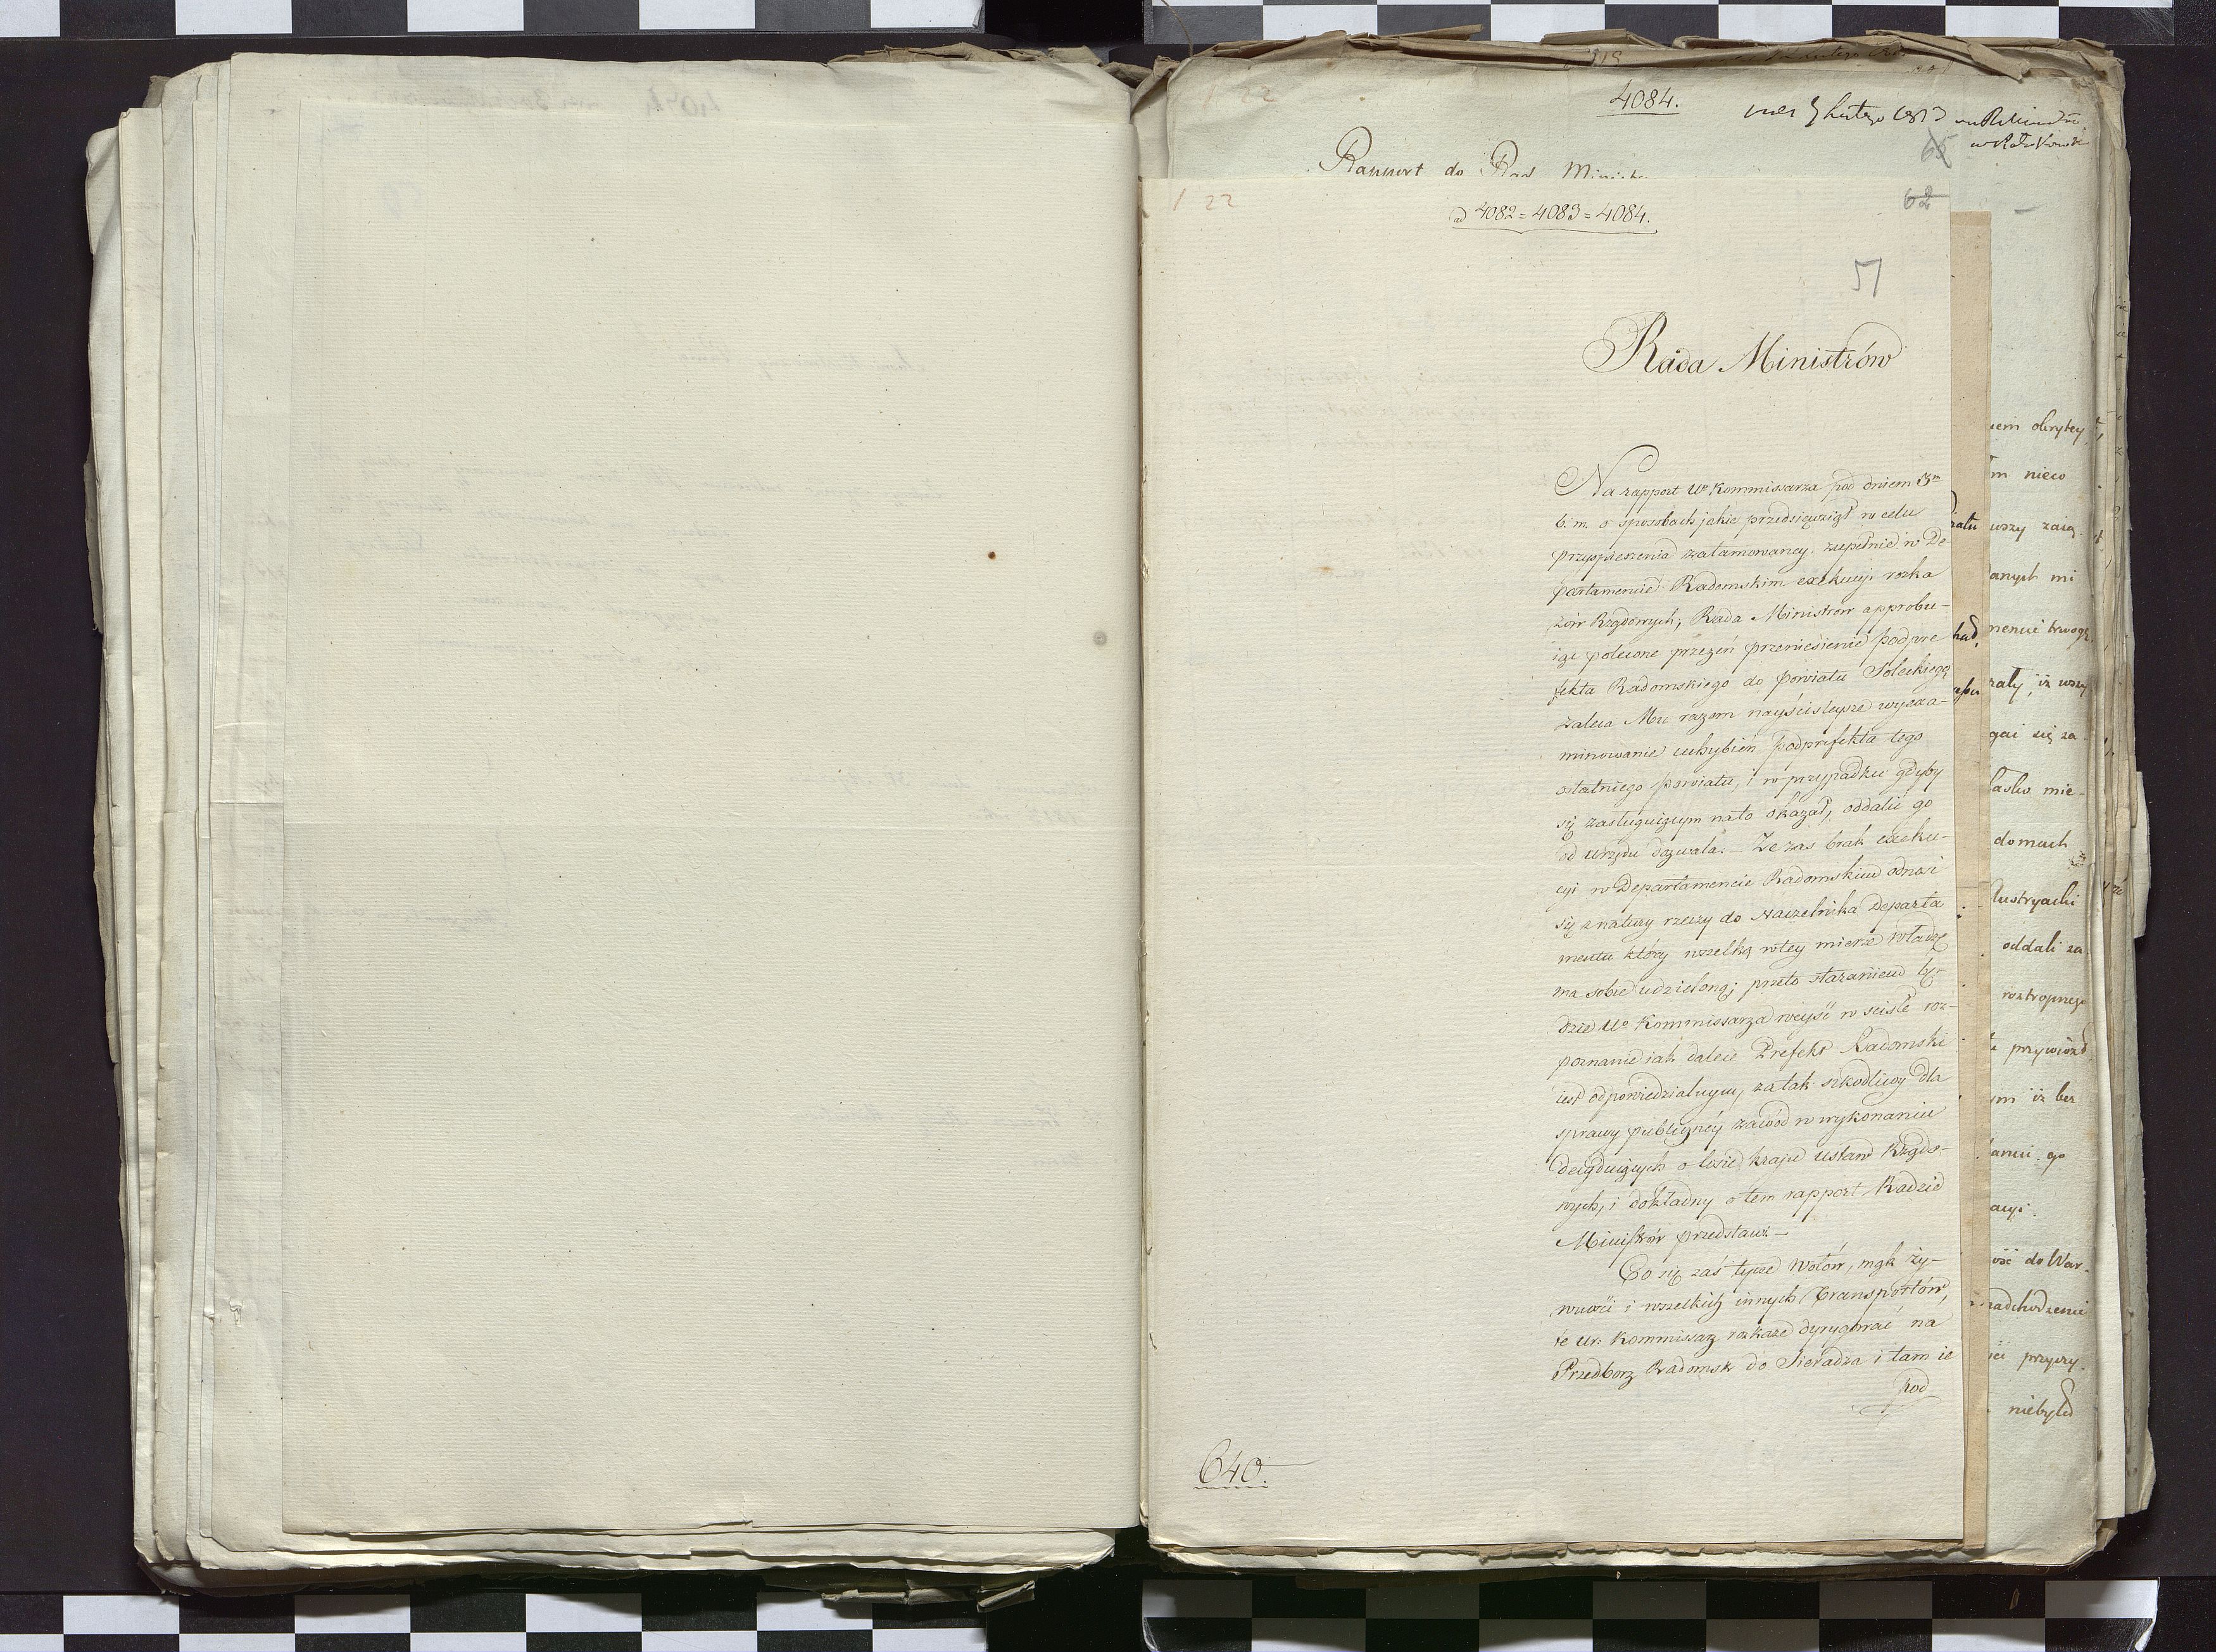 4084.
Rapport do Rad Minist
1 22
62
ad 4082 = 4083 = 4084.
51
Rada Ministrów
Na rapport Ur Kommissarza pod dniem 3m
b. m. o sposobach jakie przedsięwziął w celu
przyspieszenia zatamowaney zupełnie w De-
partamencie Radomskim exekucyi rozka
zów Rządowych, Rada Ministrów approbu-
iąc polecone przezeń przeniesienie podpre
fekta Radomskiego do powiatu Soleckiego
zaleca Mu razem nayściśleysze wyexa-
minowanie uchybień podprefekta tego
ostatniego powiatu, i w przypadku gdyby
się zasługuiącym na to okazał, oddalić go
od urzędu dozwala. - Że zas brak exeku-
cyi w Departamencie Radomskim odnosi
się z natury rzeczy do Naczelnika Departa
mentu który wszelką w tey mierze władzę
ma sobie udzieloną; przeto staraniem bę-
dzie Ur Kommissarza weyść w ścisłe roz-
poznanie iak dalece Prefekt Radomski
iest odpowiedzialnym, za tak szkodliwy dla
sprawy publiczney zawód w wykonaniu
decyduiących o losie kraju ustaw Rządo-
wych, i dokładny o tem rapport Radzie
Ministrów przedstawi. -
Co się zaś tycze wołów, mąk ży-
wności i wszelkich innych Transportów,
te Ur: Kommissarz rozkaże dyrygować na
Przedborz Radomsk do Sieradza i tam ie
pod
640.
iem okrytey
m nieco
wszy zaię
anych mi
nenci trwogę
zały, iż wszy
gai się za
łasko mie-
domach
Austryacki
oddali za
roztropnego
przywiózł
ym iż bez
aniu go
acyi.
ość do War-
nadchodzeniu
ści przyczy
niebyło